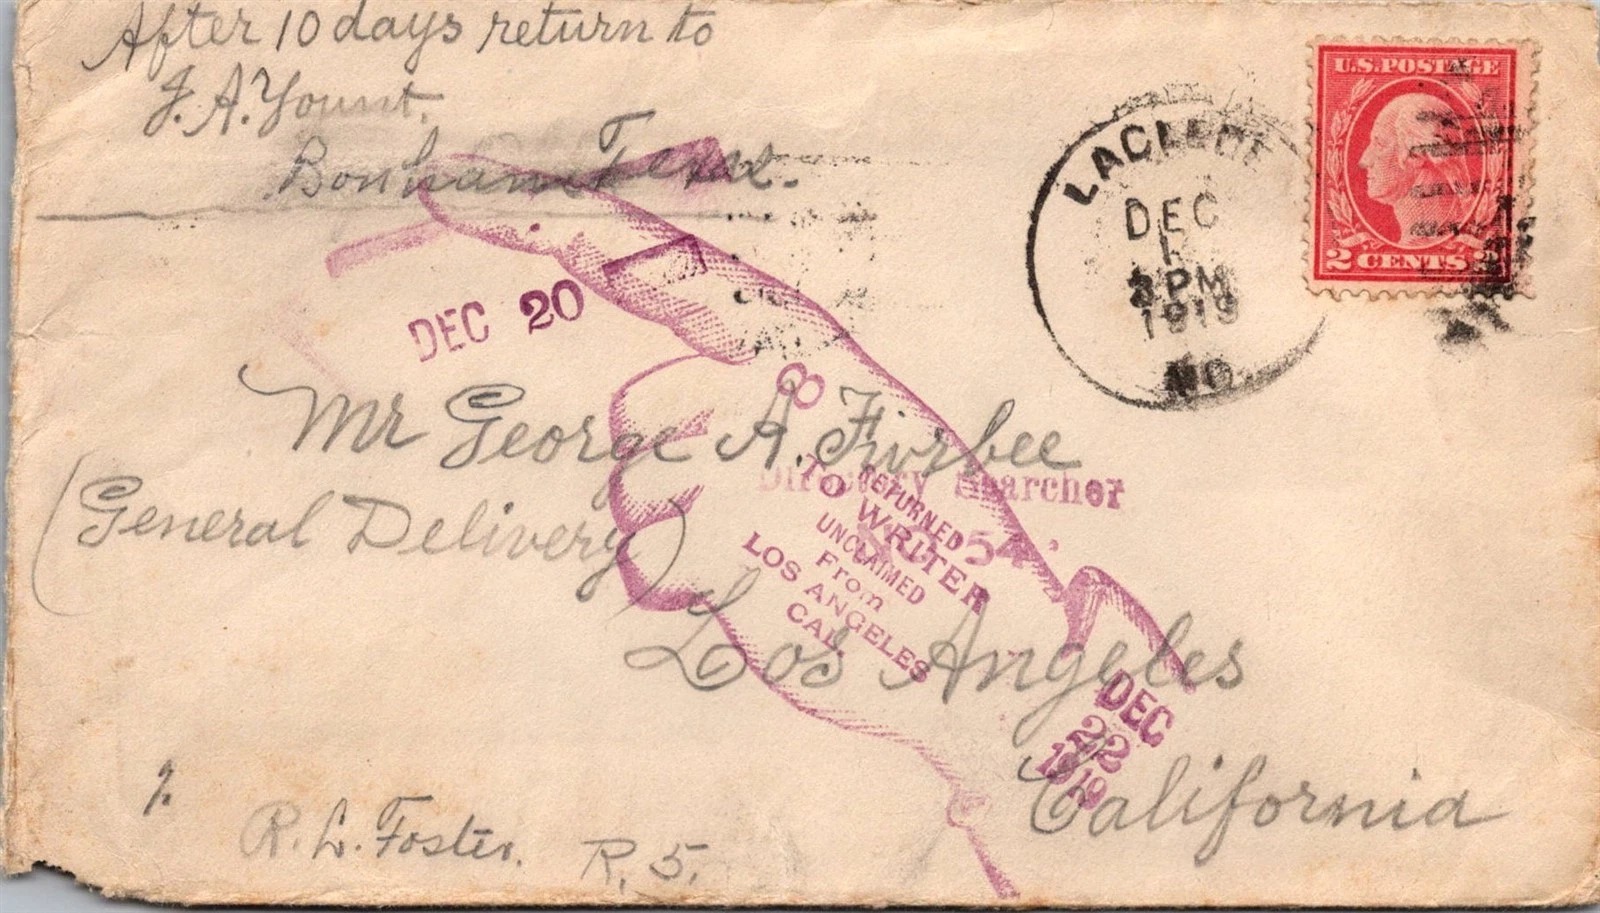 After 10 days return to
J. A. Yount.
Bonham Texas.
U.S. POSTAGE
2 CENTS 2
LACLEDE
DEC
1919
MO.
DEC 20
8
Mr George A. Furbee
(General Delivery)
Directory Searcher
54
RETURNED
TO WRITER
UNCLAIMED
From
LOS ANGELES
CAL.
Los Angeles
California
DEC
22
1919
R. L. Foster. R. 5.